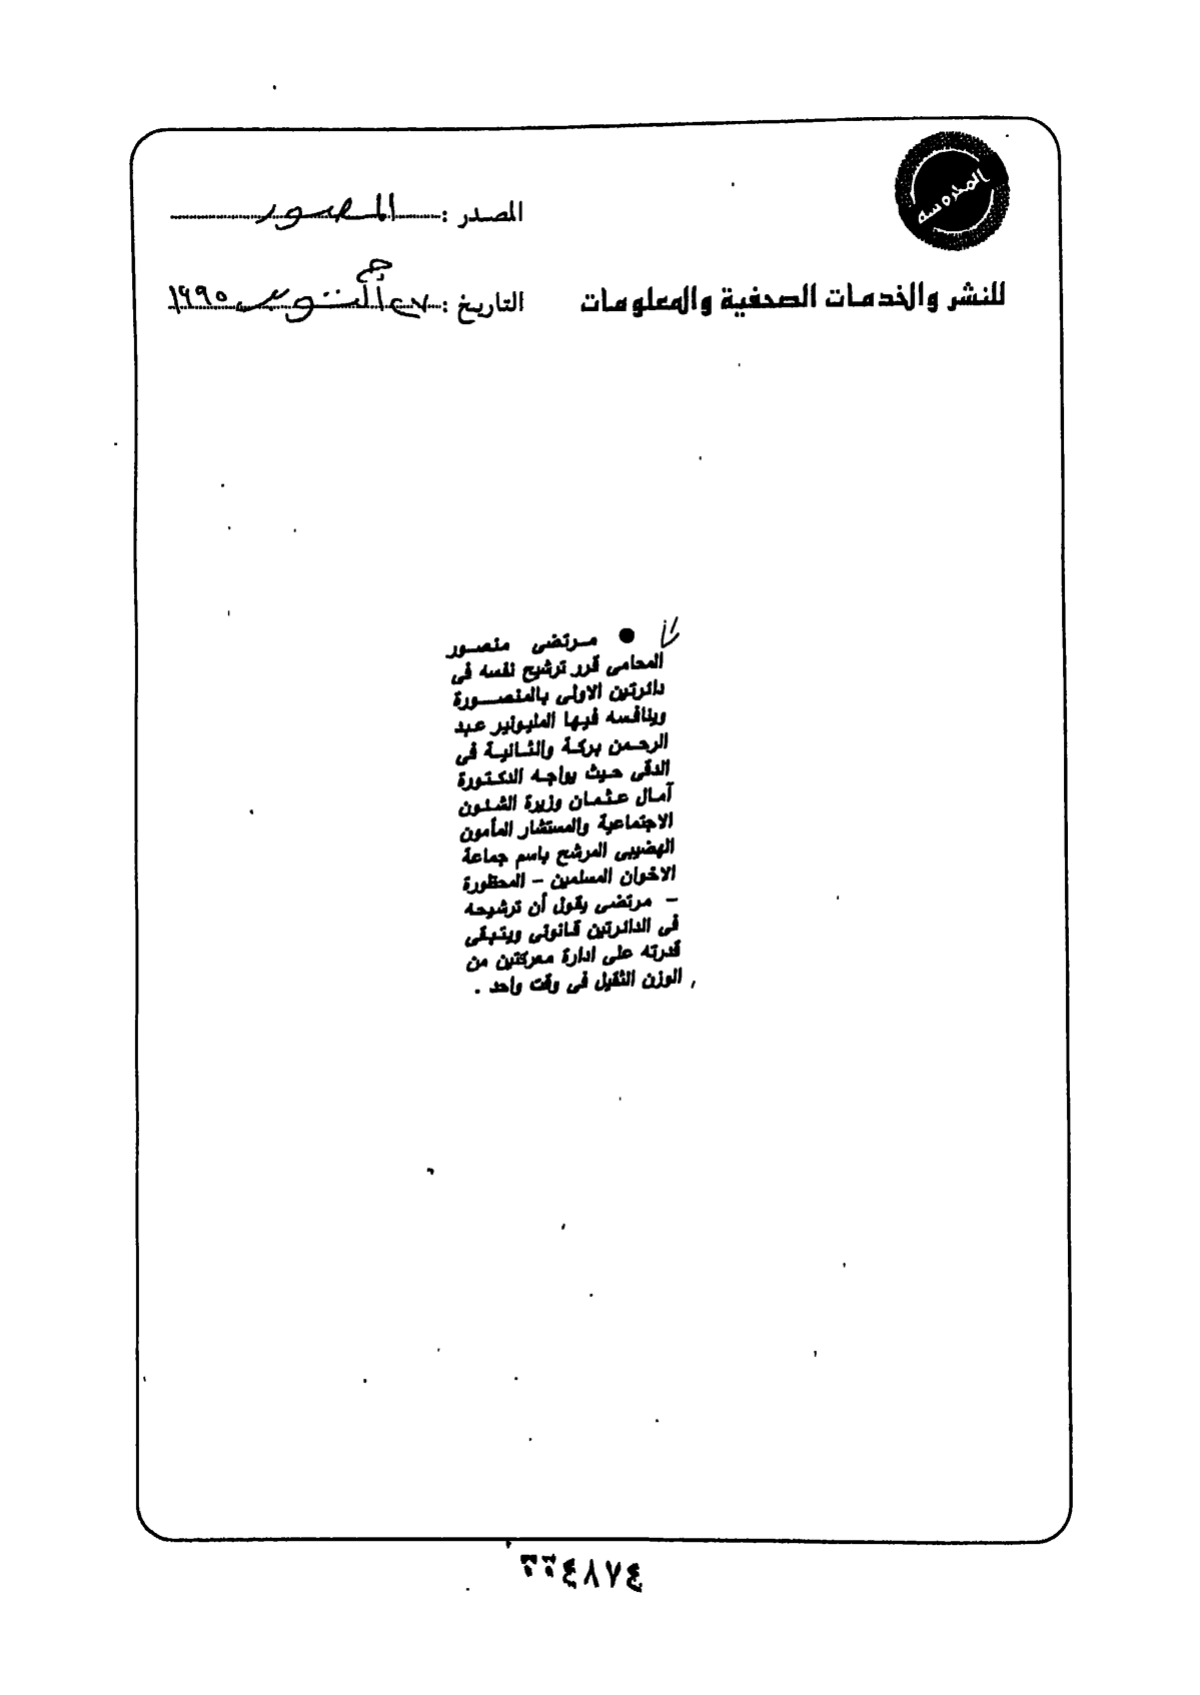 المحروسة
المصدر : المصور
للنشر والخدمات الصحفية والمعلومات
التاريخ : ٢٧ أكتوبر ١٩٩٥
● مرتضى منصور
المحامى قرر ترشيح نفسه فى
دائرتين الاولى بالمنصورة
وينافسه فيها المليونير عبد
الرحمن بركة والثانية فى
الدقى حيث يواجه الدكتورة
آمال عثمان وزيرة الشئون
الاجتماعية والمستشار المأمون
الهضيبى المرشح باسم جماعة
الاخوان المسلمين – المحظورة
– مرتضى يقول أن ترشيحه
فى الدائرتين قانونى ويتبقى
قدرته على ادارة معركتين من
الوزن الثقيل فى وقت واحد .